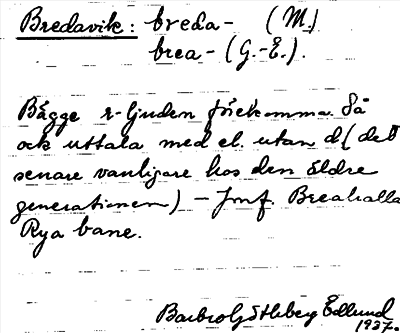 Bredavik: breda- (M.)
brea- (G.-E.).
Bägge r-ljuden förekomma. Så
ock uttala med el. utan d (det
senare vanligare hos den äldre
generationen) - Jmf. Breahalla
Rya bane.
Barbro Götleberg Edlund
1937.